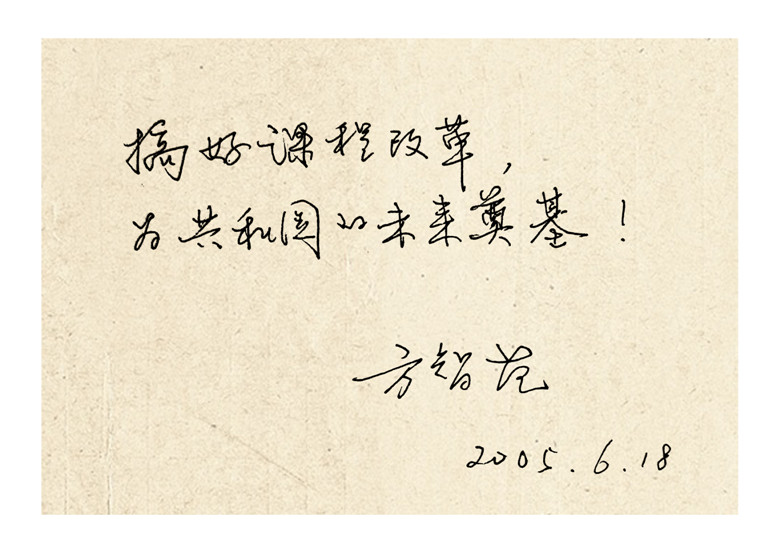 搞好课程改革，
为共和国的未来奠基！
方智范
2005.6.18